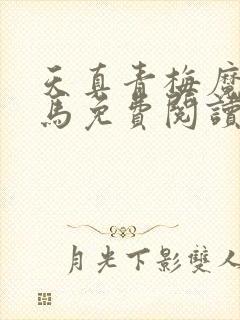 天真青梅魔
馬免費閱讀
月光下影雙人